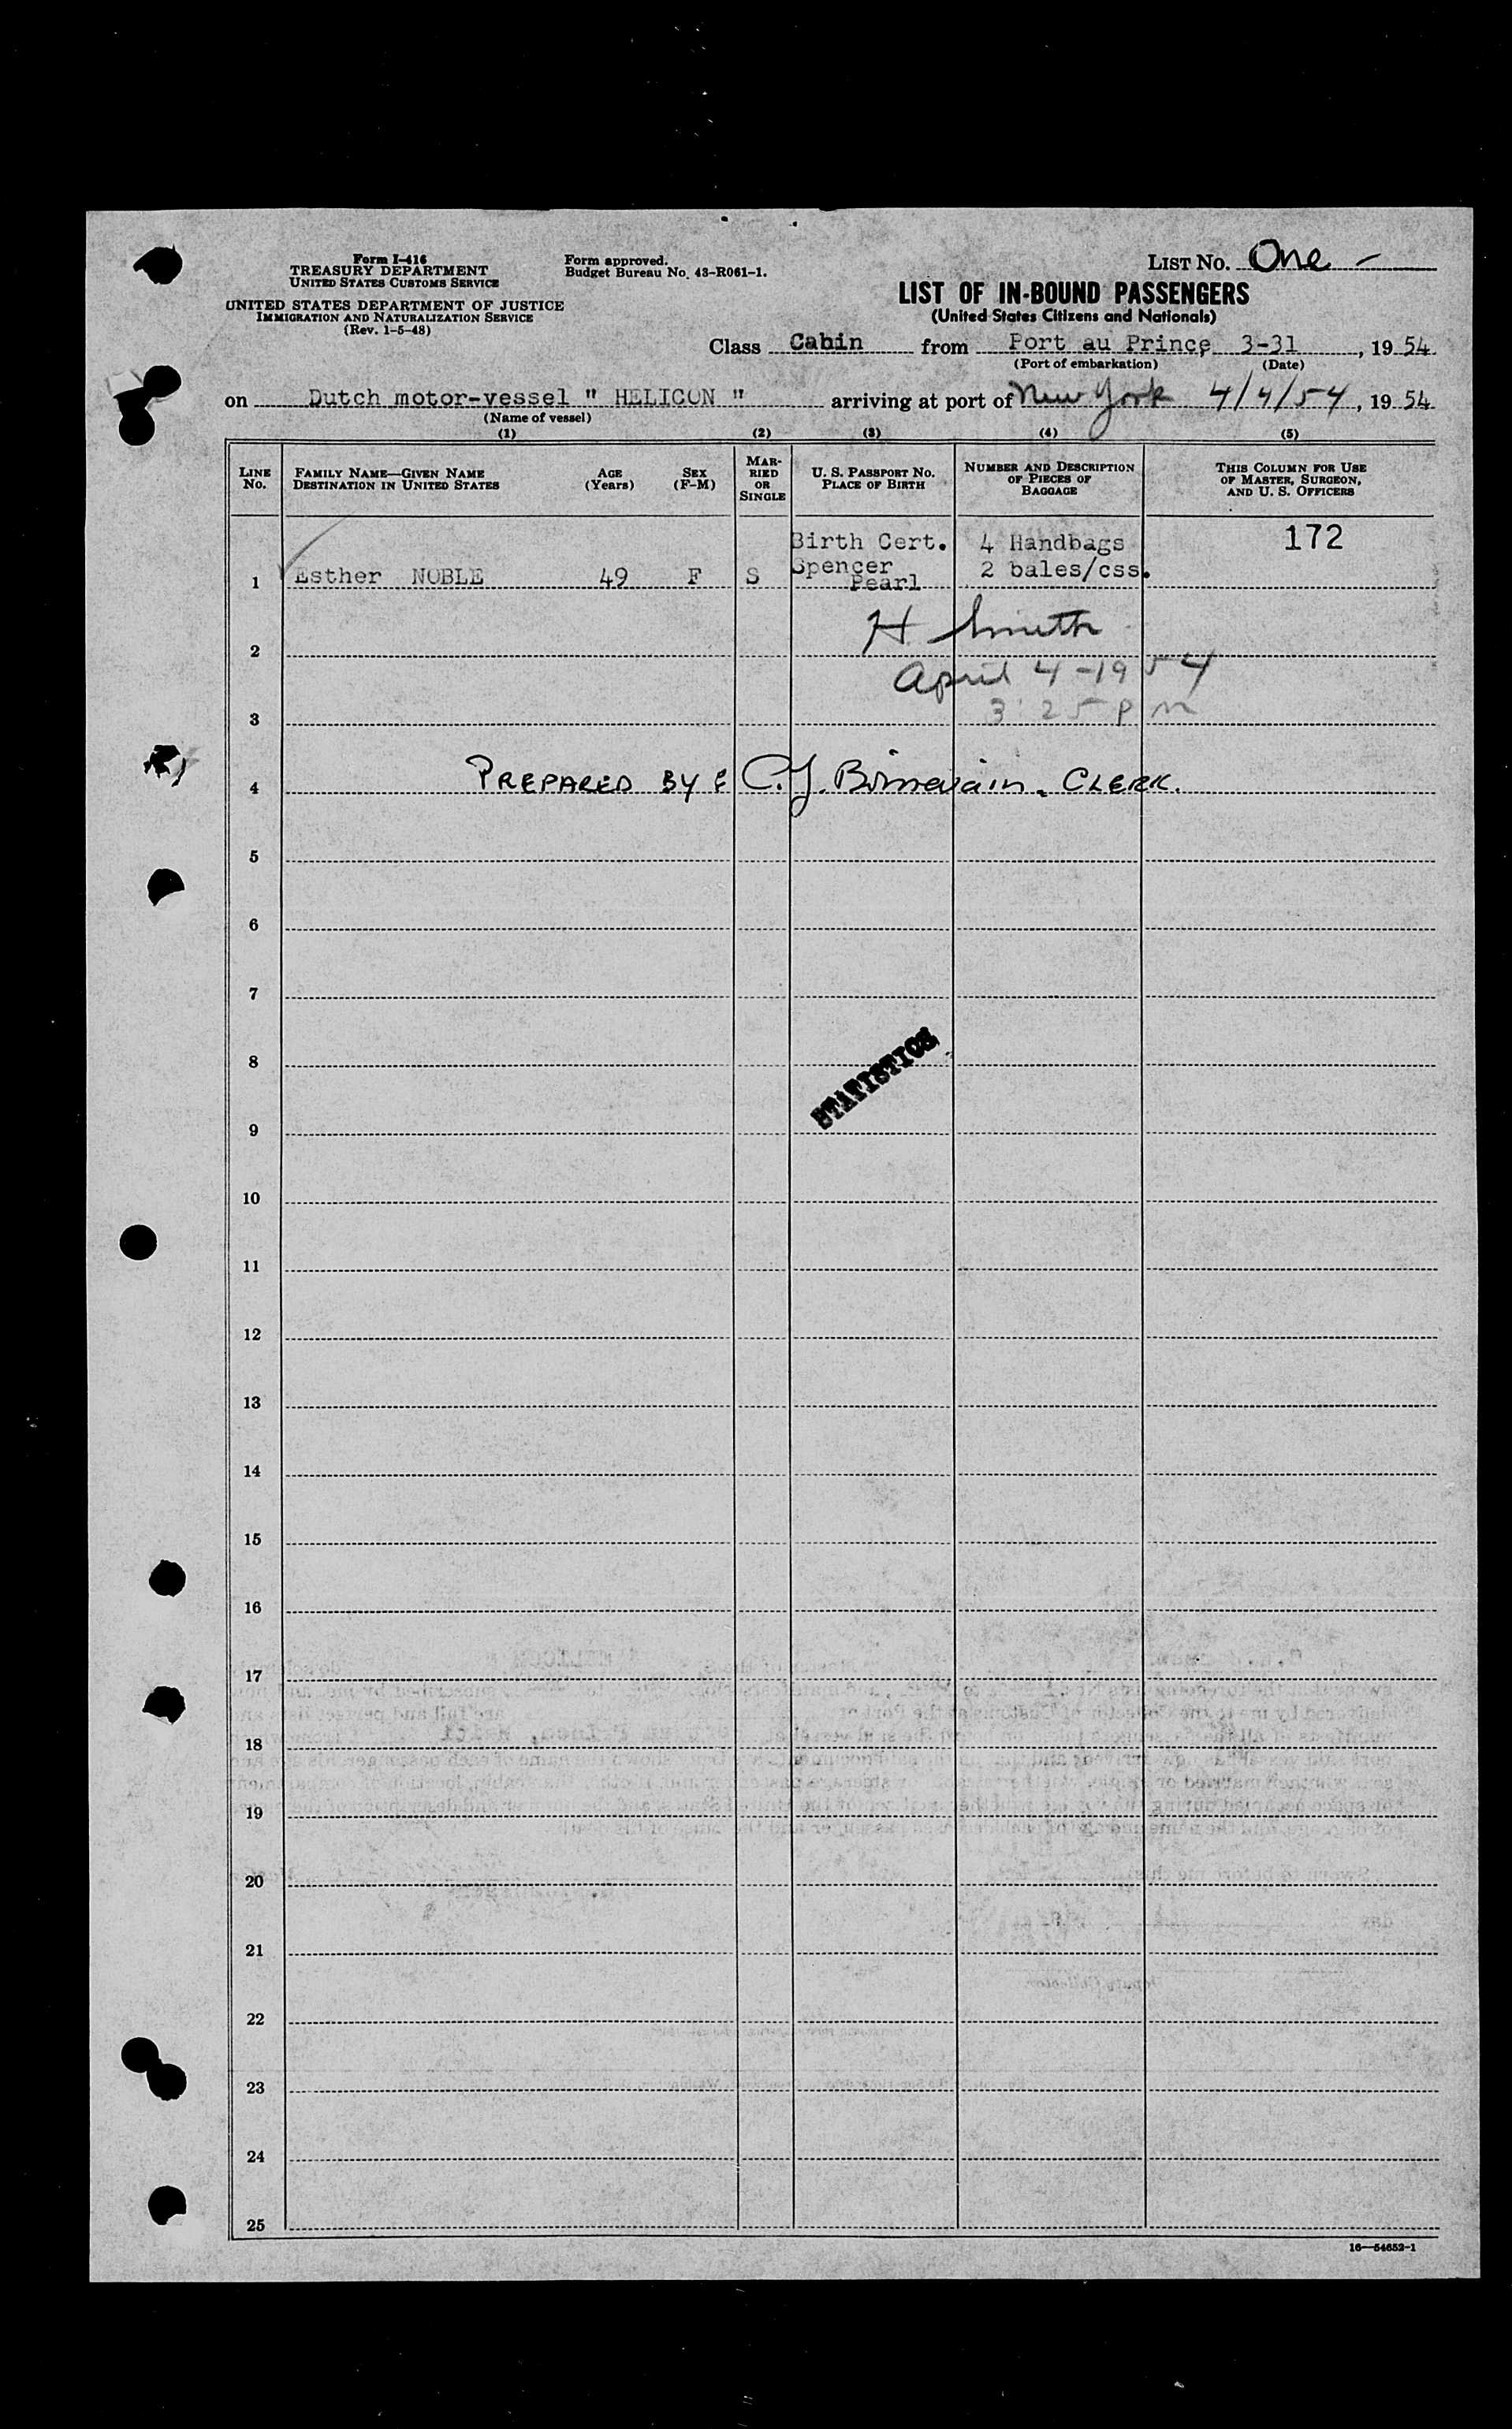 Form I-416
TREASURY DEPARTMENT
UNITED STATES CUSTOMS SERVICE
UNITED STATES DEPARTMENT OF JUSTICE
IMMIGRATION AND NATURALIZATION SERVICE
(Rev. 1-5-48)
Form approved.
Budget Bureau No. 43-R061-1.
LIST NO. One -
LIST OF IN-BOUND PASSENGERS
(United States Citizens and Nationals)
Class Cabin from Port au Prince 3-31, 19 54
(Port of embarkation) (Date)
on Dutch motor-vessel " HELICON " arriving at port of New York 4/4/54, 19 54
(Name of vessel)
(1) (2) (3) (4) (5)
LINE No. FAMILY NAME—GIVEN NAME DESTINATION IN UNITED STATES AGE (Years) SEX (F-M) MARRIED OR SINGLE U. S. PASSPORT NO. PLACE OF BIRTH NUMBER AND DESCRIPTION OF PIECES OF BAGGAGE THIS COLUMN FOR USE OF MASTER, SURGEON, AND U. S. OFFICERS
Birth Cert. 4 Handbags 172
Spencer 2 bales/css.
1 Esther NOBLE 49 F S Pearl
H Smith
2
April 4-1954
3 3:25 PM
4 PREPARED BY: C.J. CLERK.
5
6
7
8
STATISTICS
9
10
11
12
13
14
15
16
17
18
19
20
21
22
23
24
25
16—54652-1